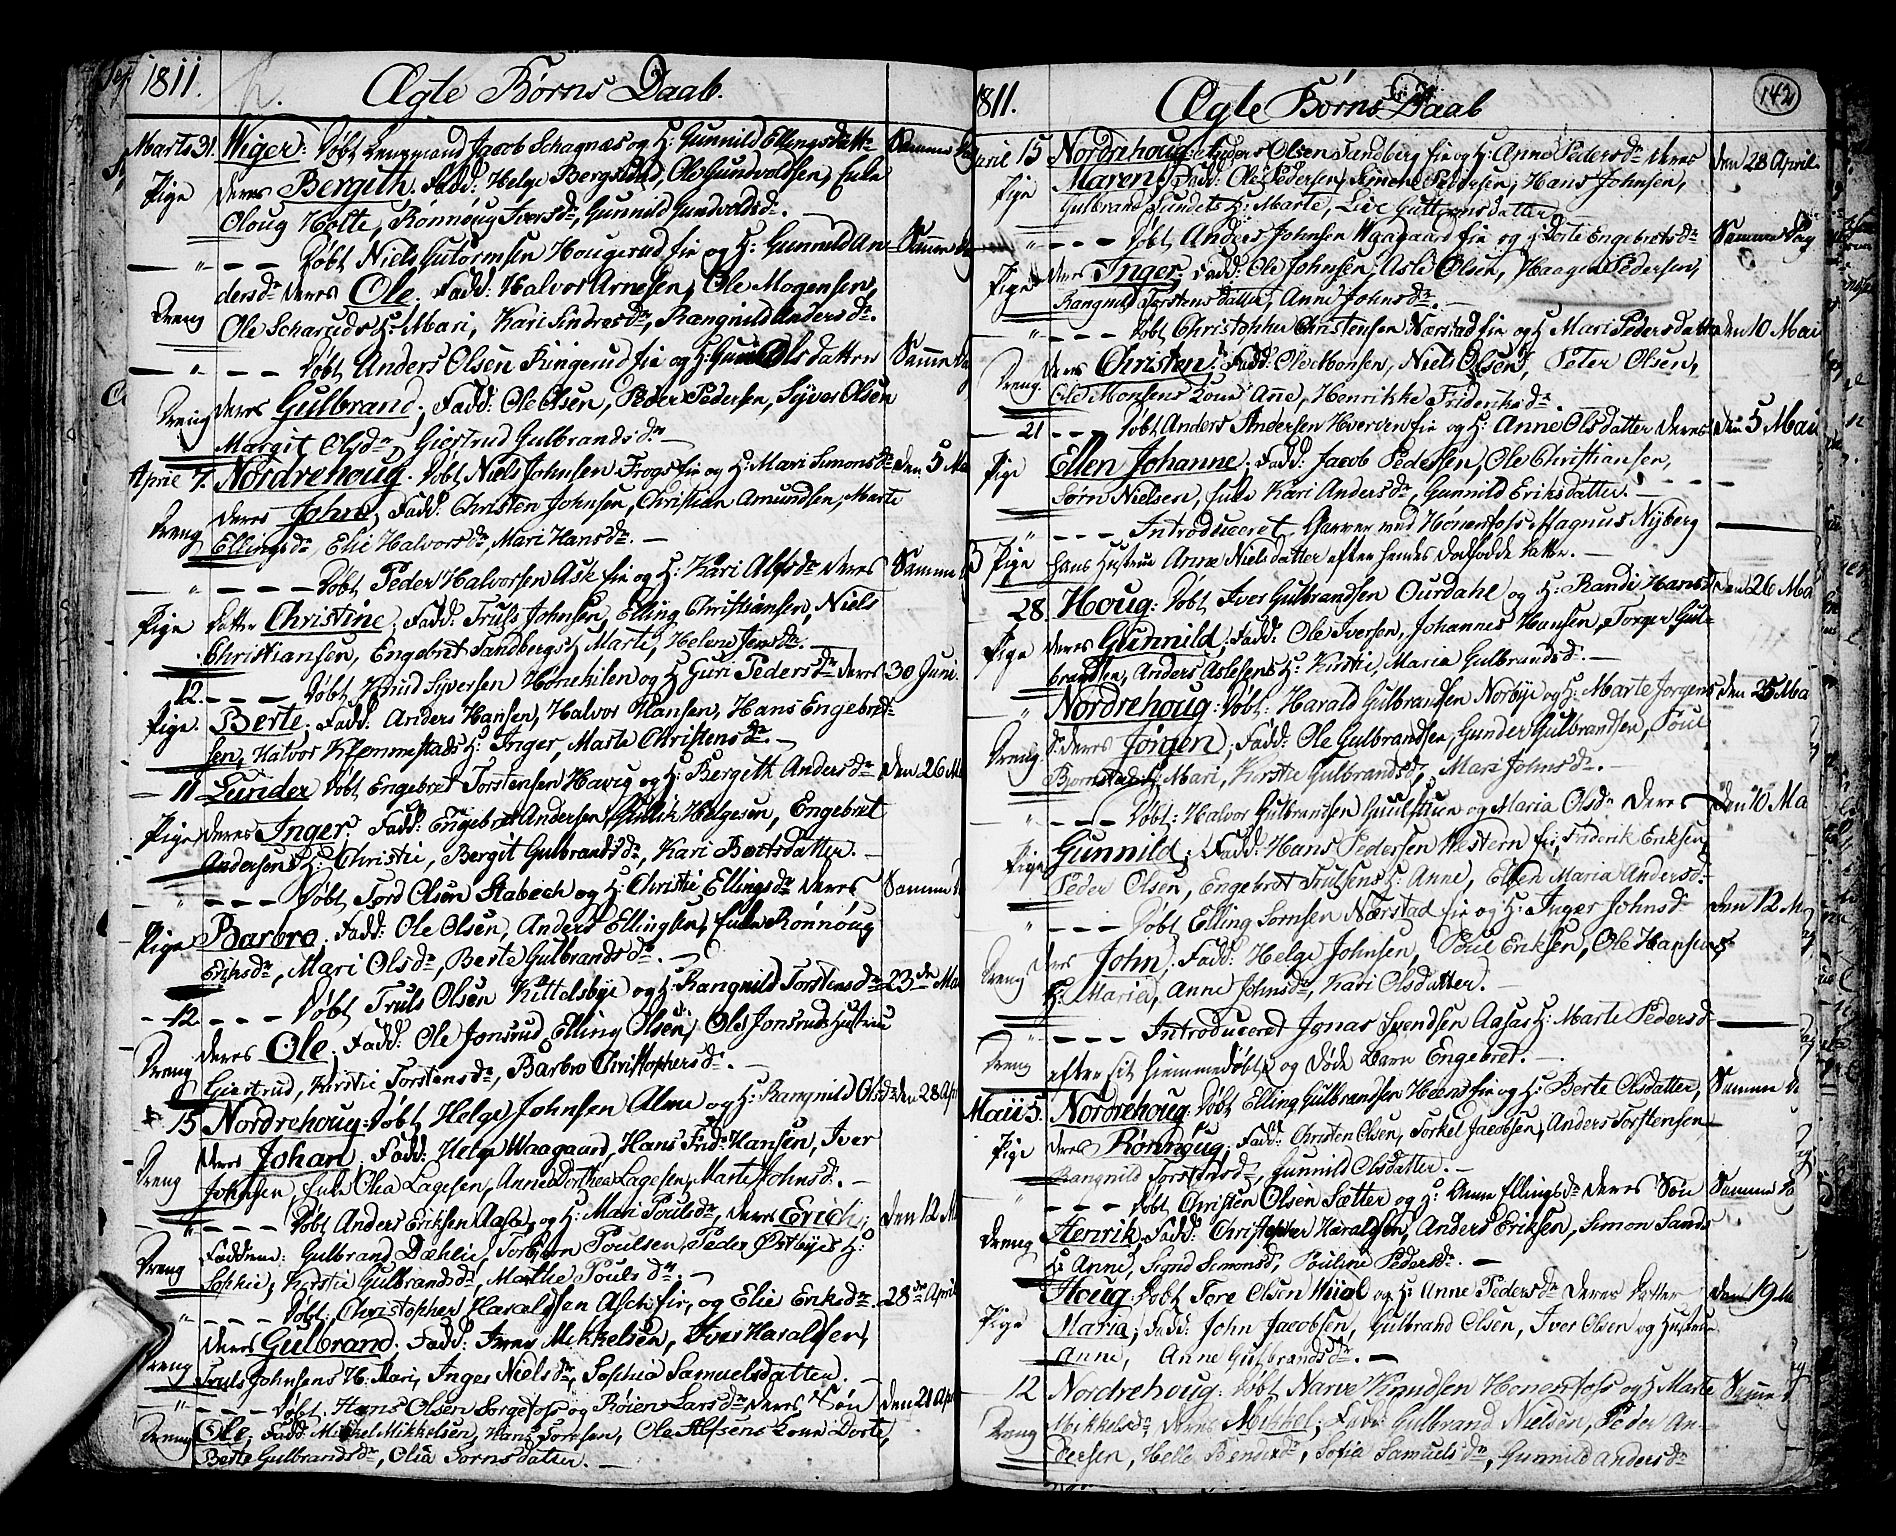 1811.
Ægte Børns Daab.
Marts 31. Wiger: Døbt Lensmand Jacob Schagnæs og H: Gunnild Ellingsdatt: Samme
Pige deres Bergith. Fadd: Helge Bergsund, Ole Gundvoldsen, Enke
Oloug Holte, Rønnoug Iversdr, Gunnild Gundvoldsdr. —
— " — — Døbt Niels Guttormsen Hougerud fie og H: Gunnild An- Samme
Dreng dersdr deres Ole. Fadd: Halvor Arnesen, Ole Mogensen,
Ole Scharuds H: Mari, Kari Endresdr, Rangnild Andersdr.
— " — — Døbt Anders Olsen Ringerud fie og H: Gunild Olsdatter Samme
Dreng deres Gulbrand, Fadd: Ole Olsen, Peder Pedersen, Syver Olsen
Margit Olsdr, Giertrud Gulbrandsdr —
April 7. Nordrehoug. Døbt Niels Johnsen Frogs fie og H: Mari Simonsdr Den 5 Ma
Dreng deres John, Fadd: Christen Johnsen, Christian Amundsen, Marte
Ellingsdr, Elie Halvorsdr, Mari Hansdr. —
" — — — Døbt Peder Halvorsen Ask fie og H: Kari Alfsdr deres Samme
Pige Datter Christine. Fadd: Truls Johnsen, Elling Christiansen, Niels
Christiansen, Engebret Sandbergs H: Marte, Helene Jensdr.
12. — — — Døbt Knud Syversen Hønekilen og H: Guri Pedersdr deres 30 Juni.
Pige. Berte, Fadd: Anders Hansen, Halvor Hansen, Hans Engebret-
sen, Halvor Klemmestads H: Inger, Marte Christensdr. —
— 11 Lunder Døbt Engebret Torstensen Havig og H: Bergith Andersdr Den 26 M
Pige deres Inger. Fadd: Engebret Andersen, Gullik Helgesen, Engebret
Andersens H: Christie, Bergit Gulbrandsdr, Kari Boetsdatter. —
" — — — Døbt Tord Olsen Stabech og H: Christie Ellingsdr deres Samme
Pige Barbro. Fadd: Ole Olsen, Anders Ellingsen, Enke Rønnoug
Eriksdr, Mari Olsdr, Berte Gulbrandsdr. —
— 12 — — — Døbt Truls Olsen Kittelsbye og H: Rangnild Torstensdr 23de Ma
Dreng deres Ole, Fadd: Ole Jonsrud, Elling Olsen, Ole Jonsruds Hustrue
Giertrud, Kirstie Torstensdr, Barbro Christophersdr. —
15 Nordrehoug: Døbt Helge Johnsen Alme og H: Rangnild Olsdr den 28 Apr
Dreng deres Johan, Fadd: Helge Waagaard, Hans Fridr Hansen, Iver
Johnsen, Enke Olea Lagesen, Anne Dorthea Lagesen, Marte Johnsdr. —
" — — — Døbt Anders Eriksen Aasa, og H: Mari Poulsdr, deres Erich, den 12 M
Dreng Faddene: Gulbrand Dæhlie, Torbjørn Poulsen, Peder Østbyes H:
Sophie, Kirstie Gulbrandsdr, Marthe Poulsdr. —
" — — — Døbt Christopher Haraldsen Asch fie, og Elie Eriksdr 28de April
Dreng deres Gulbrand. Fadd: Iver Mikkelsen, Iver Haraldsen,
Truls Johnsens H: Mari, Inger Nielsdr, Sophia Samuelsdatter.
" — — — Døbt Hans Olsen Sorgefos og Røien Larsdr deres Søn den 21 Apr
Dreng Ole, Fadd: Mikkel Mikkelsen, Hans Toresen, Ole Alfsens Kone Dorte,
Berte Gulbrandsdr, Olia Tornsdatter. —
142
1811.
Ægte Børns Daab
April 15 Nordrehoug: Anders Olsen Sandberg fie og H: Anne Pedersdr deres den 28 April
Pige Maren, Fadd: Ole Pedersen, Simen Pedersen, Hans Johnsen,
Gulbrand Sundets H: Marte, Live Guttormsdatter —
" — — — Døbt Anders Johnsen Waagaard fie og H: Dorte Engebretsdr Samme Dag
Pige deres Inger, Fadd: Ole Johnsen, Asle Olsen, Haagen Pedersen,
Rangnild Torstensdatter, Anne Johnsdr. —
" — — — Døbt Christopher Christensen Nærstad fie og H: Mari Pedersdatter den 10 Mai
Dreng. deres Christen, Fadd: Ole Monsen, Niels Olsen, Peter Olsen,
Ole Monsens Kone Anne, Henrikke Friderichsdr.
— 21 — — — Døbt Anders Andersen Hverven fie og H: Anne Olsdatter deres den 5 Mai
Pige Ellen Johanne, Fadd: Jacob Pedersen, Ole Christiansen,
Sørn Nielsen, Enke Kari Andersdr, Gunnild Eriksdatter. —
" — — — Introduceret Garver ved Hønefos Magnus Nyberg
3 Pige hans Hustrue Anne Nielsdatter efter hendes dødfødde Datter. —
28. Houg: Døbt Iver Gulbrandsen Ourdahl og H: Randi Hansdr den 26 Ma
Pige deres Gunnild, Fadd: Ole Iversen, Johannes Hansen, Torger Gul-
brandsen, Anders Aslesens H: Kirstie, Maria Gulbrandsd. —
" Nordrehoug: Døbt: Harald Gulbrandsen Norbye og H: Marte Jorgens den 25 Ma
Dreng d: deres Jørgen, Fadd: Ole Gulbrandsen, Gunder Gulbrandsen, Poul
Bjørnstads H: Mari, Kirstie Gulbrandsdr, Mari Johnsdr. —
" — — — Døbt: Halvor Gulbrandsen og Maria Olsdr deres Den 10 Ma
Pige Gunnild, Fadd: Hans Pedersen Western fie, Friderik Eriksen,
Peder Olsen, Engebret Trulsens H: Anne, Ellen Maria Andersd.
" — — — Døbt Elling Sørnsen Nærstad fie og H: Inger Johnsdr den 12 M
Dreng deres John, Fadd: Helge Johnsen, Poul Eriksen, Ole Hansens
H: Maria, Anne Johnsdr, Kari Olsdatter. —
" — — — Introduceret Jonas Svendsen Aasas H: Marte Pedersd
Dreng efter sit hiemmedøbte og døde Barn Engebret. —
Maii 5. Nordrehoug Døbt Elling Gulbrandsen Heens fie og H: Berte Olsdatter, Samme
Pige deres Rønnoug. Fadd: Christen Olsen, Torkel Jacobsen, Anders Torstensen
Rangnild Torstensdr, Gunnild Olsdatter. —
" — — — Døbt Christen Olsen Sætter og H: Anne Ellingsdr deres Søn Samme
Dreng Henrik, Fadd: Christopher Haraldsen, Anders Eriksen, Simon Sands
H: Anne, Sigrid Simonsd, Pouline Pedersdr. —
Houg Døbt Tore Olsen og H: Anne Pedersdr deres Datter den 19 M
Pige Maria, Fadd: John Jacobsen, Gulbrand Olsen, Iver Olsen og Hustrue
Anne, Anne Gulbrandsdr. —
12 Nordrehoug: Døbt Narve Knudsen Honerfoss og H: Marte Samme
Dreng Mikkelsdr deres Mikkel; Fadd: Gulbrand Nielsen, Peder An-
dersen, Helle Bendixdr, Sofia Samuelsdr, Gunnild Andersdr